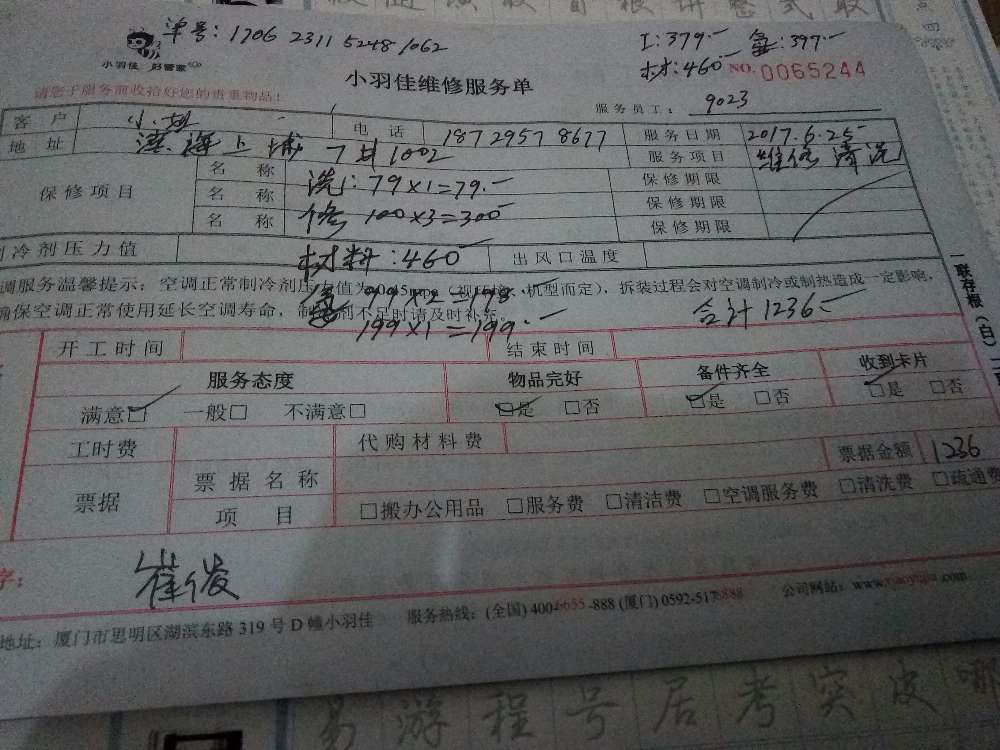 单号：1706 2311 5248 1062
工：379.— 氟：397.—
材：460—
NO. 0065244
小羽佳 好管家
小羽佳维修服务单
请您于服务前收拾好您的贵重物品！
服务员工： 9023
客 户 电 话 18729578677 服务日期 2017.6.25
地 址 滨海上城 7#1002 服务项目 维修清洗
保修项目 名 称 洗：79×1=79.— 保修期限
名 称 修 100×3=300— 保修期限
名 称 保修期限
制冷剂压力值 材料：460— 出风口温度
调服务温馨提示：空调正常制冷剂压力值为 机型而定），拆装过程会对空调制冷或制热造成一定影响，
氟 99×2=198.—
确保空调正常使用延长空调寿命，制冷剂不足时请及时补充。
199×1=199.—
合计1236.—
开工时间 结束时间
服务态度 物品完好 备件齐全 收到卡片
满意□ 一般□ 不满意□ □是 □否 □是 □否 □是 □否
工时费 代购材料费 票据金额 1236
票据 票据名称
项 目 □搬办公用品 □服务费 □清洁费 □空调服务费 □清洗费 □疏通费
字： 崔俊
地址：厦门市思明区湖滨东路 319 号 D 幢小羽佳 服务热线：(全国) 400-6655-888 (厦门) 0592-517 888 公司网站：www.xiaoyujia.com
一联存根（白）
易 游 程 号 居 考 突 皮 哪